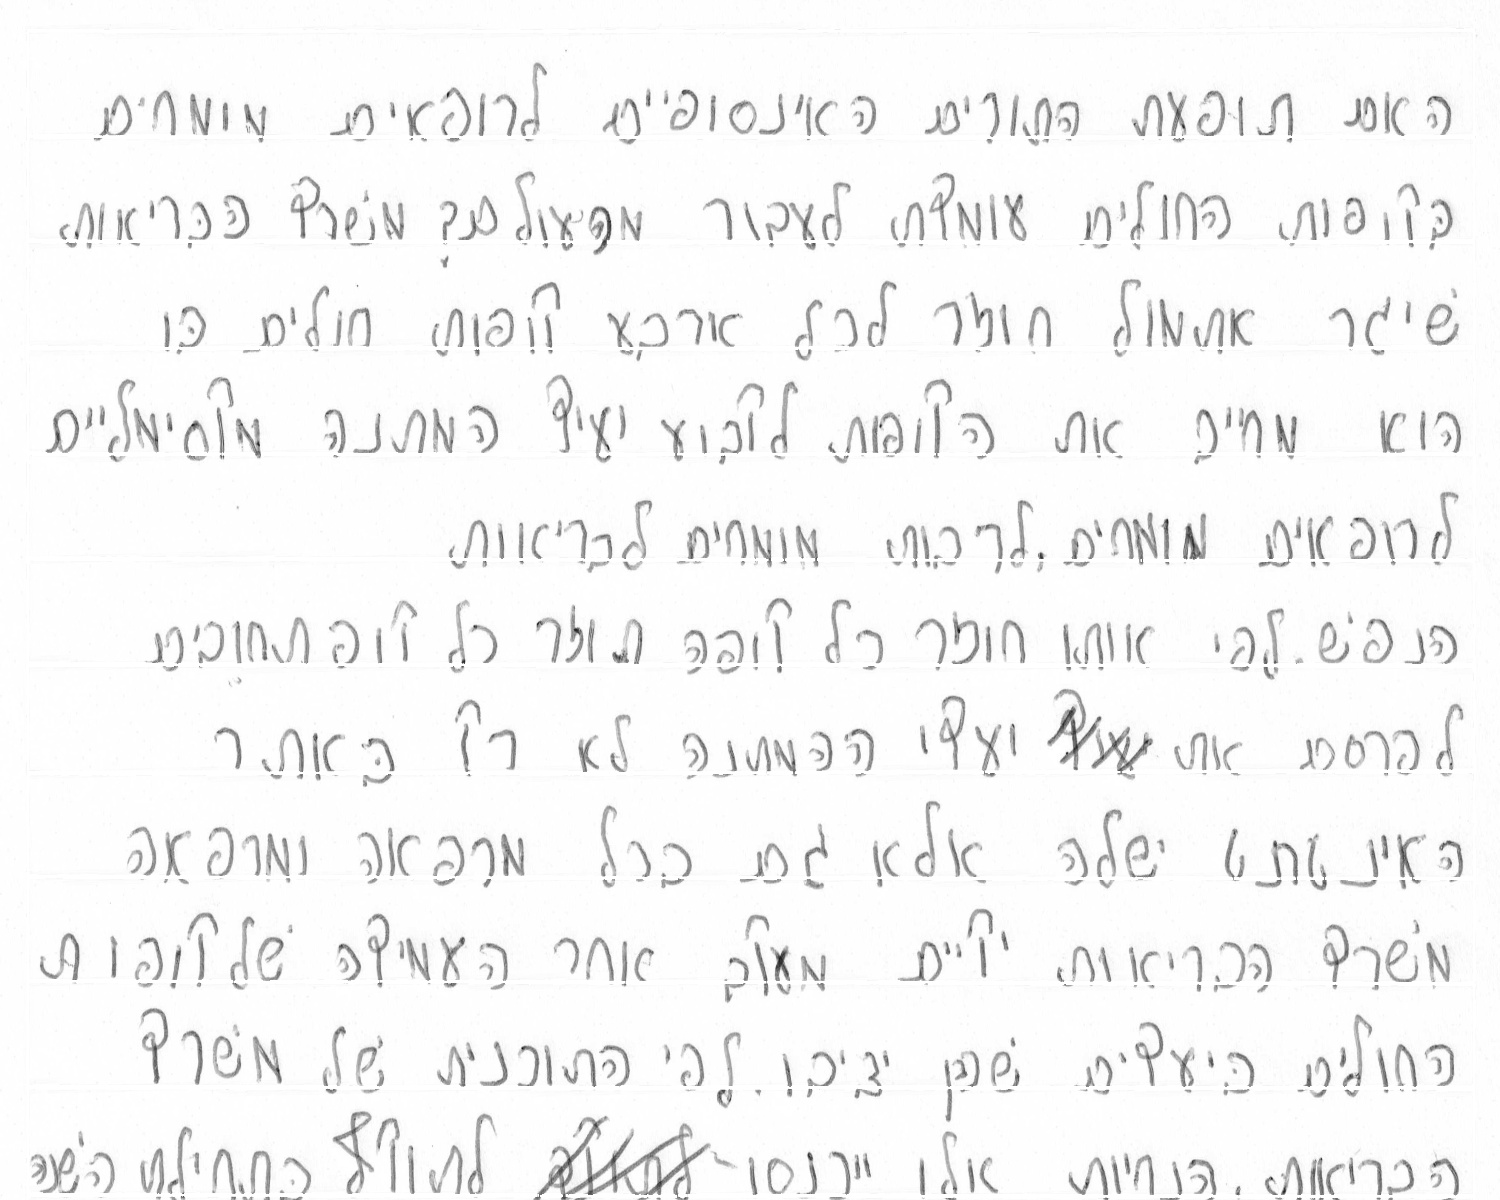 האם תופעת התורים האינסופיים לרופאים מומחים
בקופות החולים עומדת לעבור משרד הבריאות
שיגר אתמול חוזר לכל ארבע קופות חולים בו
הוא מחייב את הקופות לקבוע יעיד המתנה מקסימליים
לרופאים מומחים, לרבות מומחים לבריאות
הנפש. לפי אותו חוזר כל קופה תוזר כל קופ תחוכים
לפרסם את יעדי ההמתנה לא רק באתר
האינטרנט ישלה אלא גם בכל מרפאה ומרפאה
משרד הבריאות יקיים מעקב אחר העמידה של קופות
החולים ביעדים שהן יציבו. לפי התוכנית של משרד
הבריאות, הנחיות אלו ייכנסו לתוקף בתחילת השנה